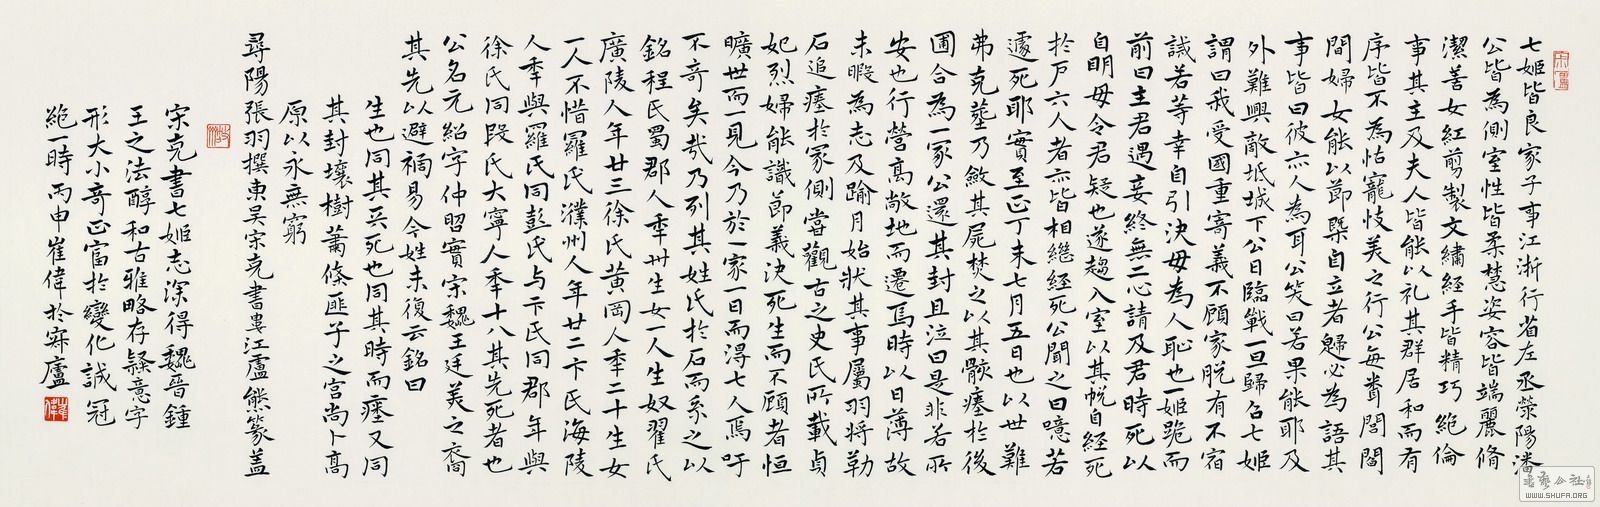 七姬皆良家子事江浙行省左丞滎陽潘
公皆為側室性皆柔慧姿容皆端麗脩
潔善女紅剪製文繡經手皆精巧絕倫
事其主及夫人皆能以礼其群居和而有
序皆不為怙寵忮美之行公每賚閤
間婦女能以節槩自立者歸必為語其
事皆曰彼亦人為耳公笑曰若果能耶及
外難興敵坻城下公日臨戰一旦歸召七姬
謂曰我受國重寄義不顧家脫有不宿
誠若等幸自引決毋為人恥也一姬跪而
前曰主君遇妾終無二心請及君時死以
自明毋令君疑也遂趨入室以其帨自經死
於戶六人者亦皆相繼經死公聞之曰噫若
遽死耶實至正丁未七月五日也以世難
弗克塟乃斂其屍焚之以其骸瘞於後
圃合為一冢公還其封且泣曰是非若所
安也行營高敞地而遷焉時以日薄故
未暇為志及踰月始狀其事屬羽將勒
石追瘞於冢側嘗觀古之史氏所載貞
妃烈婦能識節義決死生而不顧者恒
曠世而一見今乃於一家一日而得七人焉吁
不奇矣哉乃列其姓氏於石而系之以
銘程氏蜀郡人年卅生女一人生奴翟氏
廣陵人年廿三徐氏黃岡人年二十生女
一人不惜羅氏濮州人年廿二卞氏海陵
人年與羅氏同彭氏与卞氏同郡年與
徐氏同段氏大寧人年十八其先死者也
公名元紹字仲昭實宋魏王廷美之裔
其先以避禍易今姓未復云銘曰
生也同其英死也同其時而瘞又同
其封壤樹蕭條匪子之宮尚卜高
原以永無窮
尋陽張羽撰東吳宋克書婁江盧熊篆蓋
宋克書七姬志深得魏晉鍾
王之法醇和古雅略存隸意字
形大小奇正富於變化誠冠
絕一時丙申崔偉於寐廬
崔偉
書藝公社
WWW.SHUFA.ORG